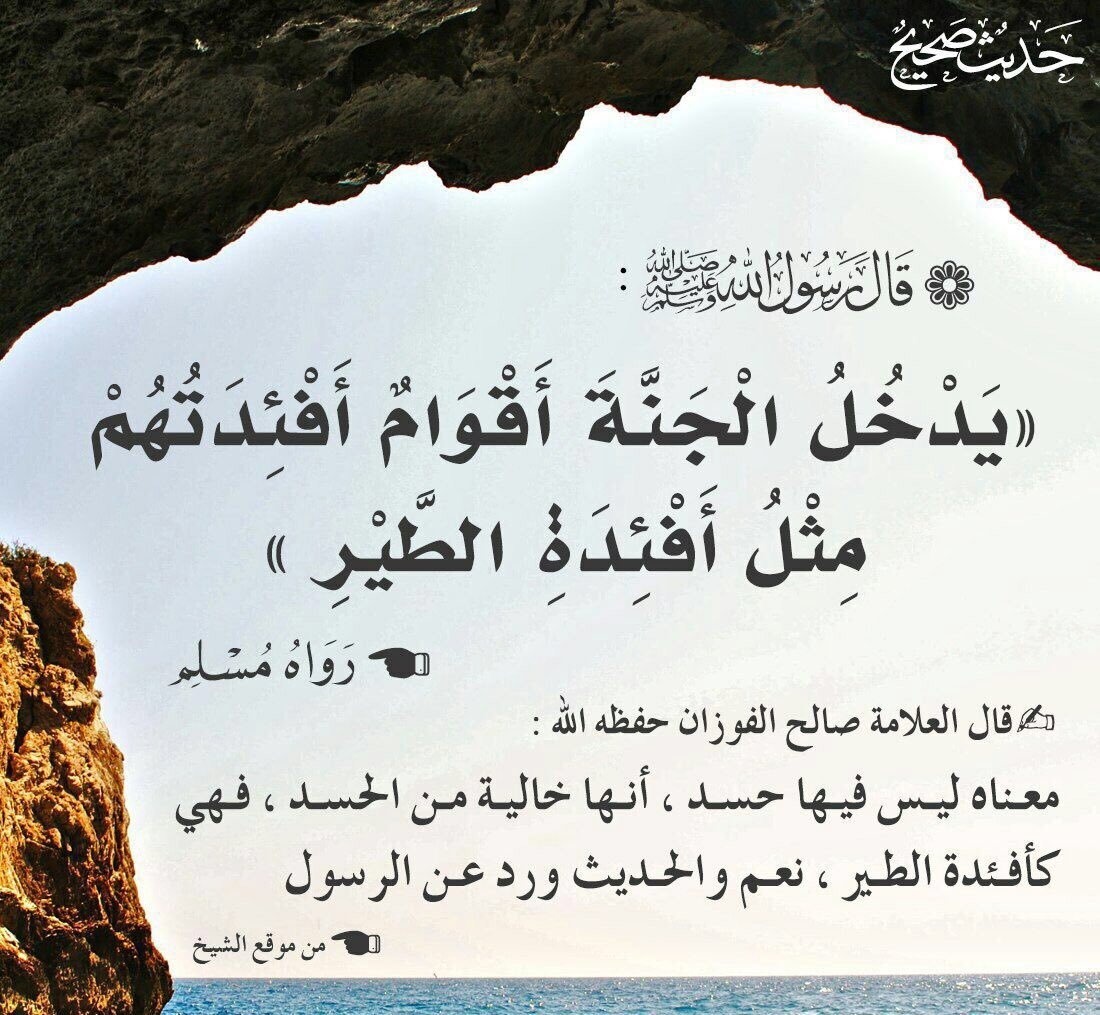 حَدِيثٌ صَحِيحٌ
قَالَ رَسُولُ اللهِ ﷺ :
«يَدْخُلُ الْجَنَّةَ أَقْوَامٌ أَفْئِدَتُهُمْ
مِثْلُ أَفْئِدَةِ الطَّيْرِ »
رَوَاهُ مُسْلِم
قال العلامة صالح الفوزان حفظه الله :
معناه ليس فيها حسد ، أنها خالية من الحسد ، فهي
كأفئدة الطير ، نعم والحديث ورد عن الرسول
من موقع الشيخ